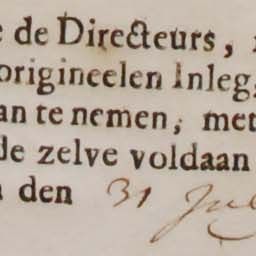 e de Directeurs,
origineelen Inleg
an te nemen, met
de zelve voldaan
den 31 Jul